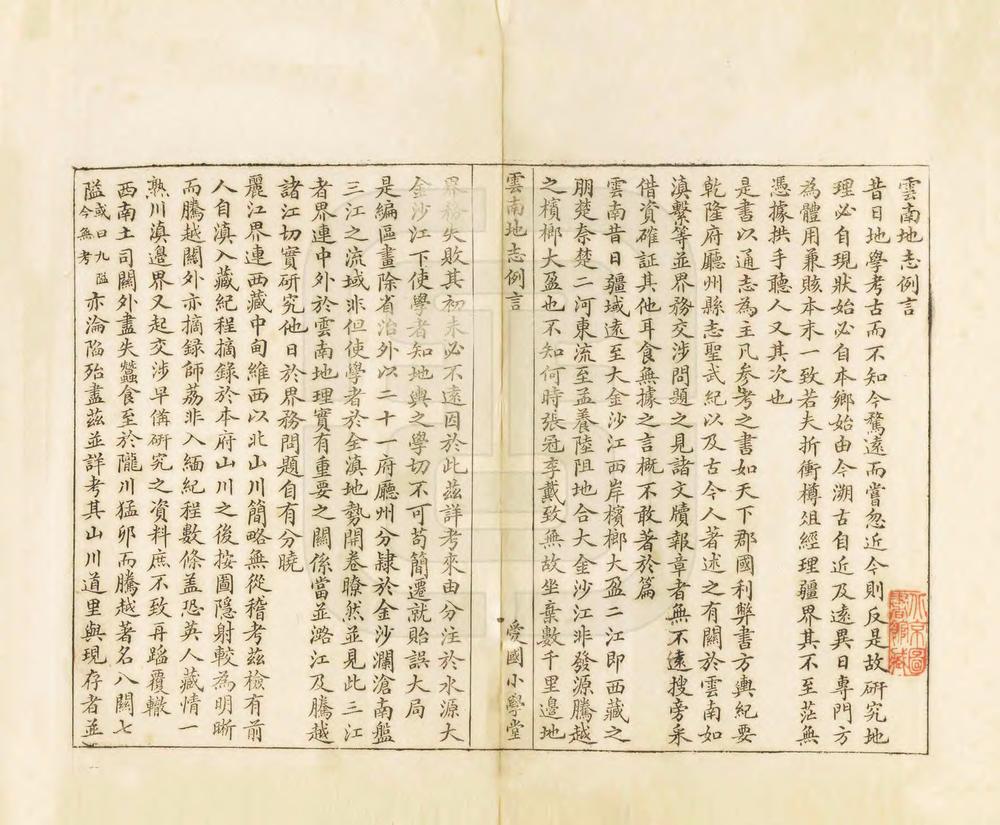 雲南地志例言
昔日地學考古而不知今騖遠而嘗忽近今則反是故研究地
理必自現狀始必自本鄉始由今溯古自近及遠異日專門方
為體用兼賅本末一致若夫折衝樽俎經理疆界其不至茫無
憑據拱手聽人又其次也
是書以通志為主凡參考之書如天下郡國利弊書方輿紀要
乾隆府廳州縣志聖武紀以及古今人著述之有關於雲南如
滇繫等並界務交涉問題之見諸文牘報章者無不遠搜旁采
借資確証其他耳食無據之言概不敢著於篇
雲南昔日疆域遠至大金沙江西岸檳榔大盈二江即西藏之
朋楚奈楚二河東流至孟養陸阻地合大金沙江非發源騰越
之檳榔大盈也不知何時張冠李戴致無故坐棄數千里邊地
雲南地志例言
愛國小學堂
界務失敗其初未必不遠因於此茲詳考來由分注於水源大
金沙江下使學者知地輿之學切不可苟簡遷就貽誤大局
是編區畫除省治外以二十一府廳州分隸於金沙瀾滄南盤
三江之流域非但使學者於全滇地勢開卷瞭然並見此三江
者界連中外於雲南地理實有重要之關係當並潞江及騰越
諸江切實研究他日於界務問題自有分曉
麗江界連西藏中甸維西以北山川簡略無從稽考茲檢有前
人自滇入藏紀程摘錄於本府山川之後按圖隱射較為明晰
而騰越關外亦摘錄師荔非入緬紀程數條蓋恐英人藏情一
熟川滇邊界又起交涉早備研究之資料庶不致再蹈覆轍
西南土司關外盡失蠶食至於隴川猛卯而騰越著名八關七
隘或曰九隘今無考亦淪陷殆盡茲並詳考其山川道里與現存者並